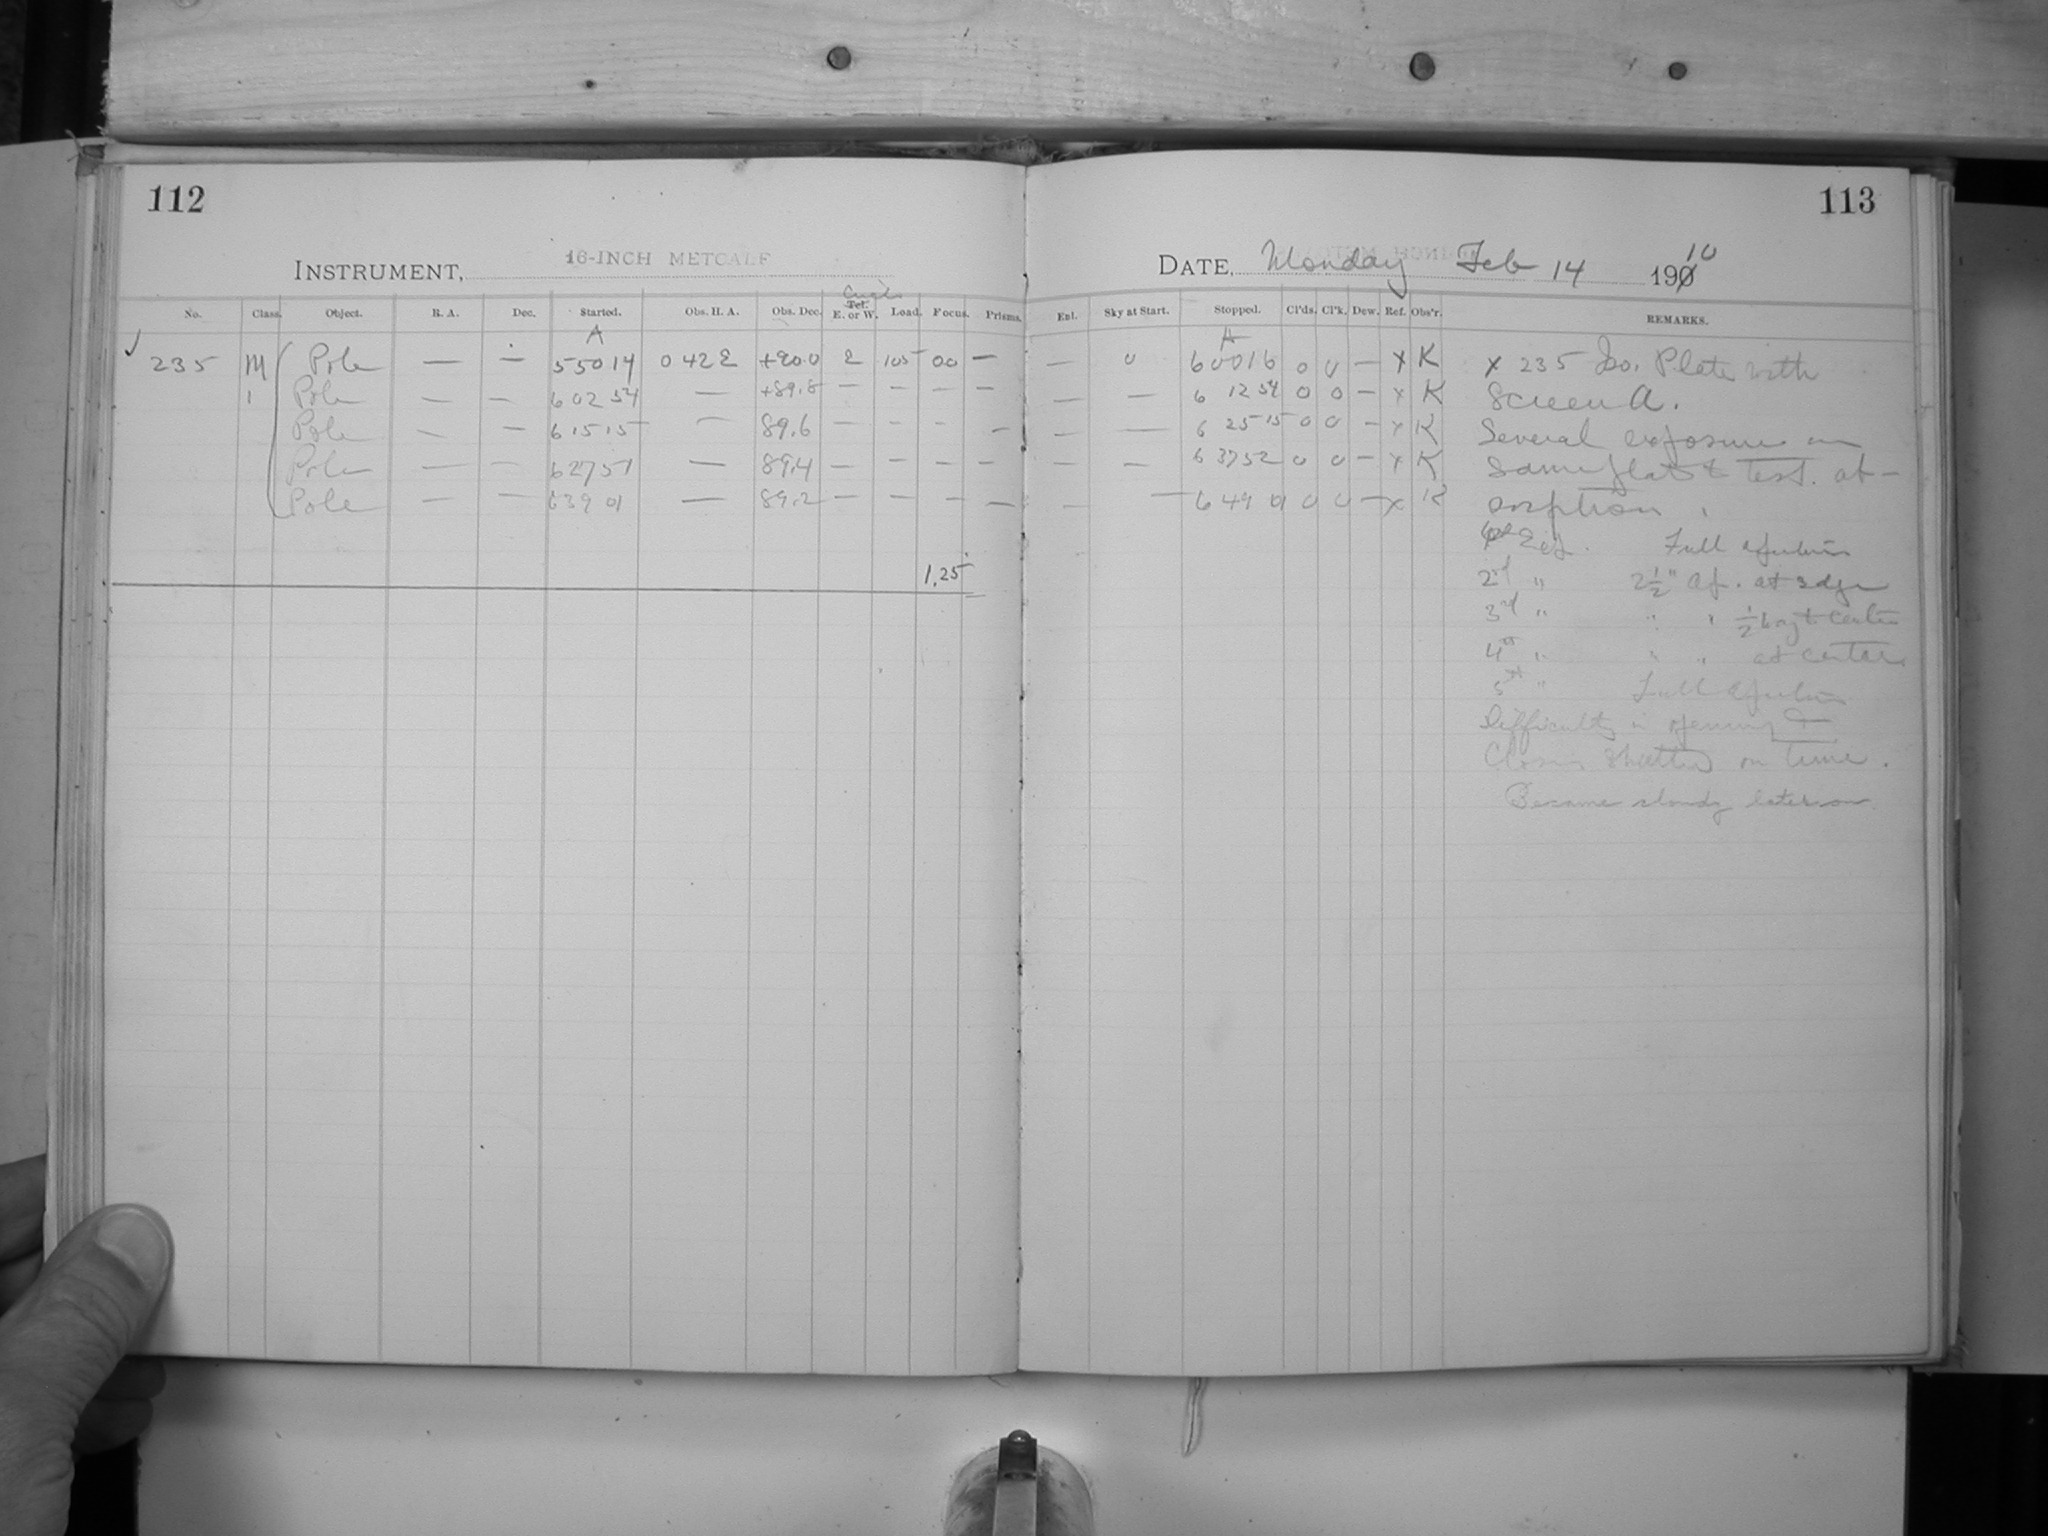 112
INSTRUMENT, 16-INCH METCALF
No. Class. Object. R. A. Dec. Started. Obs. H. A. Obs. Dec. Tel. E. or W. Load. Focus. Prisms.
A
235 M Pole — — 5 50 14 0 42 E +90.0 E 105 00 —
1 Pole — — 6 02 54 — +89.8 — — — —
Pole — — 6 15 15 — 89.6 — — — —
Pole — — 6 27 51 — 89.4 — — — —
Pole — — 6 39 01 — 89.2 — — — —
1.25
113
DATE, Monday Feb 14 1910
Enl. Sky at Start. Stopped. Cl'ds. Cl'k. Dew. Ref. Obs'r. REMARKS.
A
— 0 6 00 16 0 0 — x K x 235 Iso. Plate with
— — 6 12 54 0 0 — x K Screen A.
— — 6 25 15 0 0 — x K Several exposures on
— — 6 37 52 0 0 — x K same plate to test. ab-
— — 6 49 01 0 0 — x K sorption.
1st Exp. Full aperture
2nd " 2½" Ap. at edge
3rd " " " ½ way to center
4th " " " at center
5th " Full aperture
Difficulty in opening &
Closing shutter on time.
Became cloudy later on